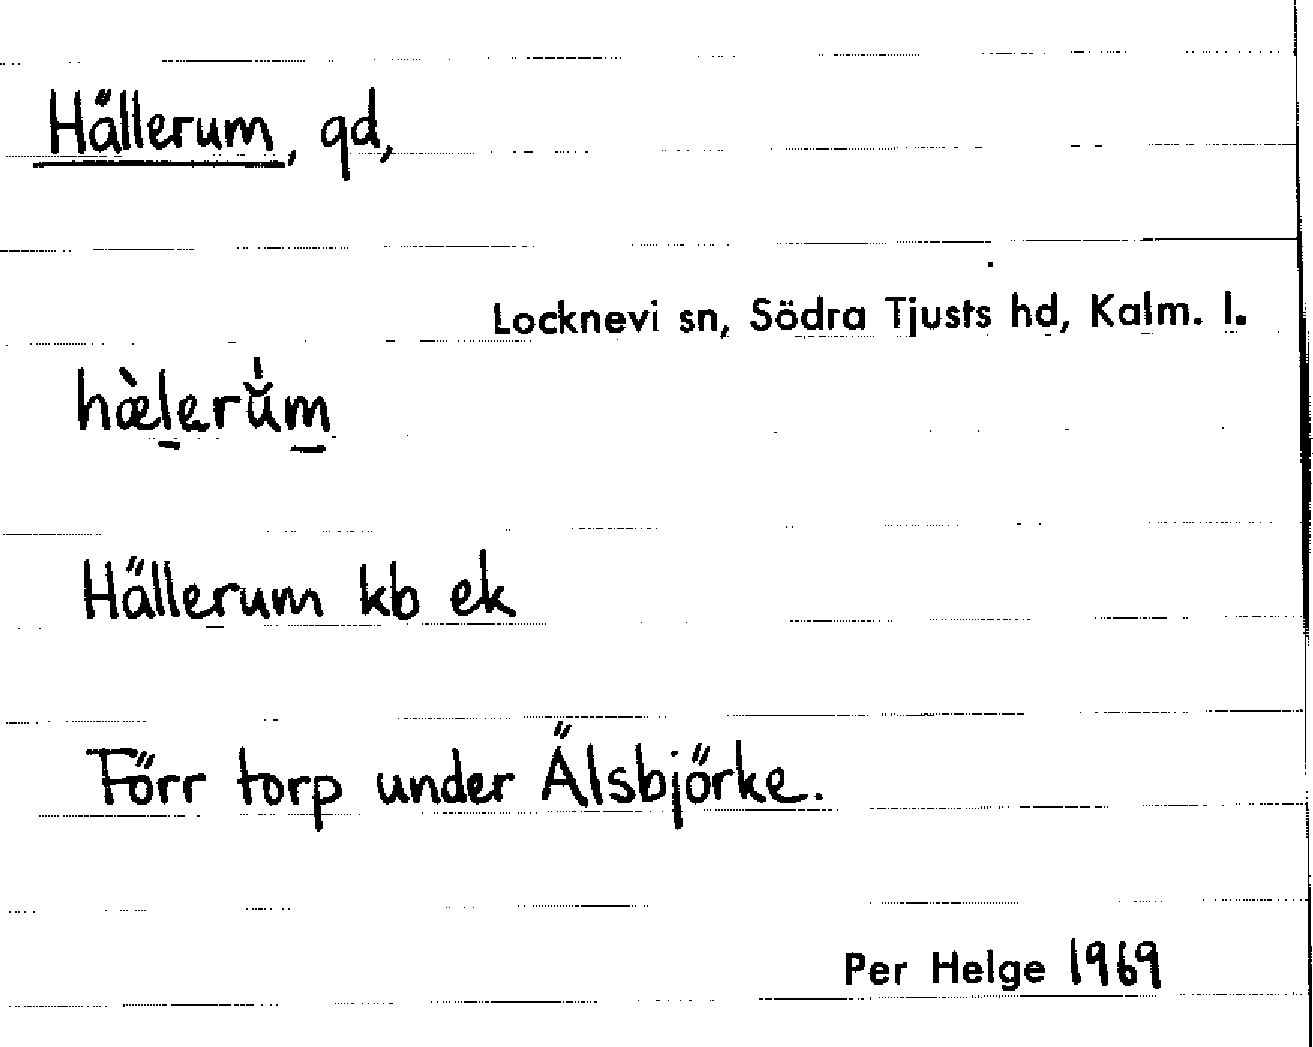 Hällerum, gd,
Locknevi sn, Södra Tjusts hd, Kalm. l.
hæ̀l̠erŭ̍m̠
Hällerum kb ek
Förr torp under Älsbjörke.
Per Helge 1969